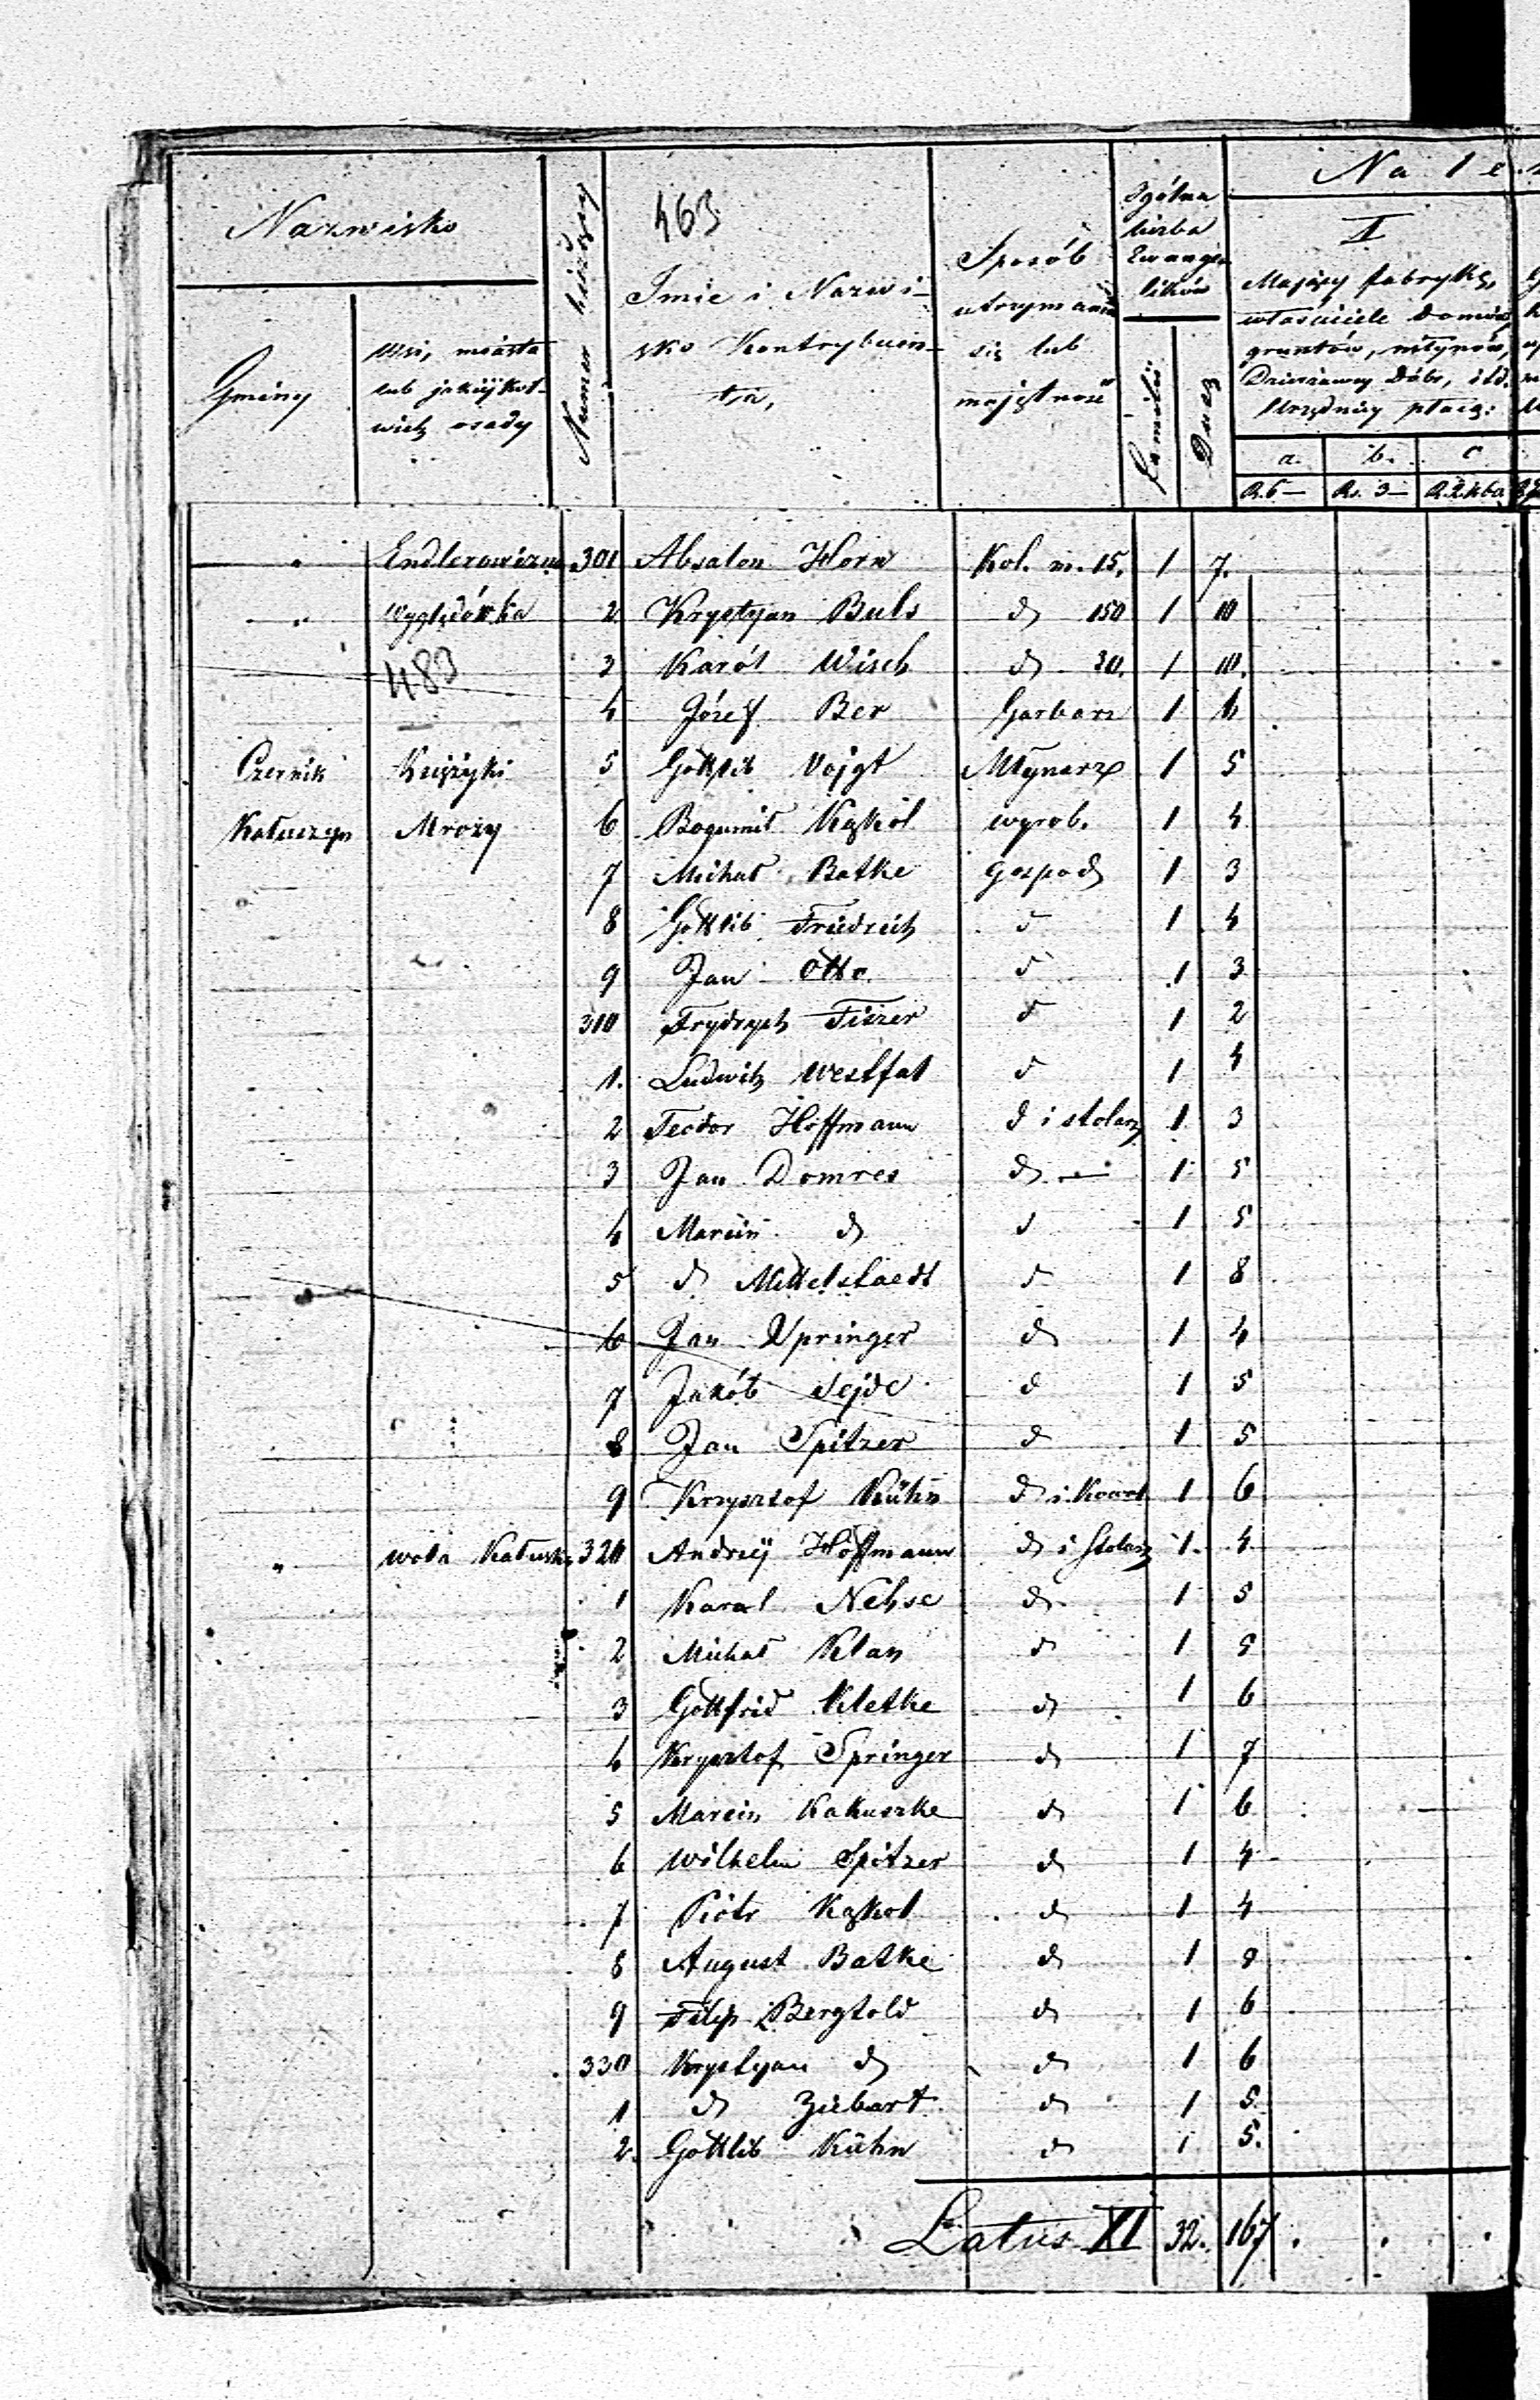 463
Nazwisko
Gminy
Wsi, miasta
lub jakiejkol-
wiek osady
Numer bieżący
Imie i Nazwi-
sko Kontrybuen-
ta,
Sposób
utrzymania
się lub
majętność
Ogólna
liczba
Ewange-
lików
Familii
Dusz
Nale
I
Mający fabrykę,
właściciele domów,
gruntów, młynów,
Dzierżawcy Dóbr, itd.
Urzędnicy płacą:
a. b. c
R. 6 — Rs. 3 —
" Endlerowizna 301 Absalon Horn Kol. m. 15. 1 7.
" Wyględówka 2 Krystyan Buls d 150 1 10
483
3 Karól Wisch d 30. 1 10.
4 Józef Ber Garbarz 1 6
Czernik Księżyki 5 Gottlib Vojgt Młynarz 1 5
Kałuszyn Mrozy 6 Bogumił Kąkól wyrob. 1 4
7 Michał Batke gospod 1 3
8 Gottlib Friedrich d 1 4
9 Jan Otto d 1 3
310 Frydrych Fiszer d 1 2
1. Ludwik Westfal d 1 4
2 Teodor Hoffmann d i stolarz 1 3
3 Jan Domres d — 1 5
4 Marcin d d 1 5
5 d Mittelstaedt d 1 8
6 Jan Springer d 1 4
7 Jakób Sejde d 1 5
8 Jan Spitzer d 1 5
9 Krzysztof Kühn d i Kowal 1 6
" Wola Kałuska 320 Andrzej Hoffmann d i Stolarz 1. 4
1 Karol Nehse d 1 5
2 Michał Klan d 1 5
3 Gottfrid Kletke d 1 6
4 Krysztof Springer d 1 7
5 Marcin Kakuszke d 1 6
6 Wilhelm Spitzer d 1 4
7 Piotr Kąkol d 1 4
8 August Batke d 1
9 Filip Bergtold d 1 6
330 Krystyan d d 1 6
1 d Ziebart d 1 5
2. Gottlib Kühn d 1 5.
Latus XI 32. 167